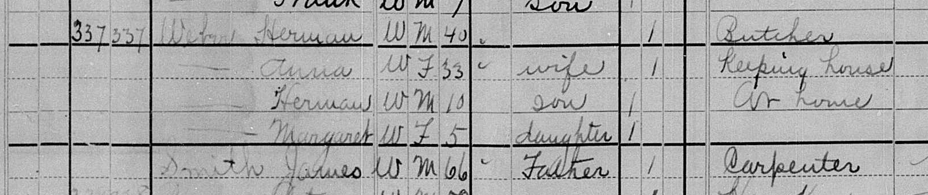 W M 7 son 1
337 337 Herman W M 40 1 Butcher
— Anna W F 33 wife 1 Keeping house
— Herman W M 10 son 1 At home
— Margaret W F 5 daughter 1
Smith James W M 66 Father 1 Carpenter